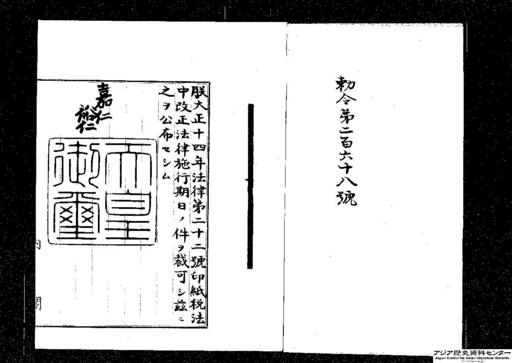 勅令第二百六十八號
朕大正十四年法律第二十二號印紙税法
中改正法律施行期日ノ件ヲ裁可シ茲ニ
之ヲ公布セシム
嘉仁
裕仁
天皇
御璽
内閣
アジア歴史資料センター
Japan Center for Asian Historical Records